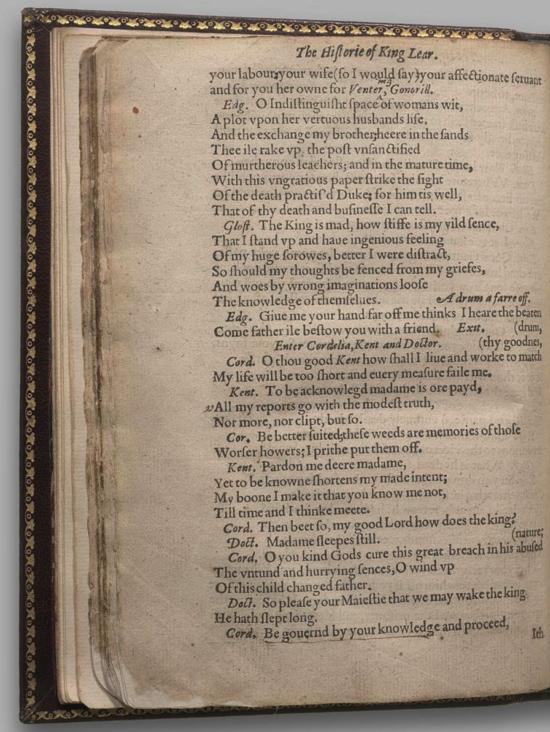 The Historie of King Lear.
your labour, your wife (so I would say) your affectionate seruant
and for you her owne for Venter, Gonorill.
Edg. O Indistinguisht space of womans wit,
A plot vpon her vertuous husbands life,
And the exchange my brother, heere in the sands
Thee ile rake vp, the post vnsanctified
Of murtherous leachers; and in the mature time,
With this vngratious paper strike the sight
Of the death practis'd Duke; for him tis well,
That of thy death and businesse I can tell.
Glost. The King is mad, how stiffe is my vild sence,
That I stand vp and haue ingenious feeling
Of my huge sorowes, better I were distract,
So should my thoughts be fenced from my griefes,
And woes by wrong imaginations loose
The knowledge of themselues. A drum a farre off.
Edg. Giue me your hand far off me thinks I heare the beaten
Come father ile bestow you with a friend. Exit. (drum,
Enter Cordelia, Kent and Doctor. (thy goodnes,
Cord. O thou good Kent how shall I liue and worke to match
My life will be too short and euery measure faile me.
Kent. To be acknowlegd madame is ore payd,
All my reports go with the modest truth,
Nor more, nor clipt, but so.
Cor. Be better suited, these weeds are memories of those
Worser howers; I prithe put them off.
Kent. Pardon me deere madame,
Yet to be knowne shortens my made intent;
My boone I make it that you know me not,
Till time and I thinke meete.
Cord. Then beet so, my good Lord how does the king?
Doct. Madame sleepes still. (nature;
Cord. O you kind Gods cure this great breach in his abused
The vntund and hurrying sences, O wind vp
Of this child changed father.
Doct. So please your Maiestie that we may wake the king
He hath slept long.
Cord. Be gouernd by your knowledge and proceed,
Ith